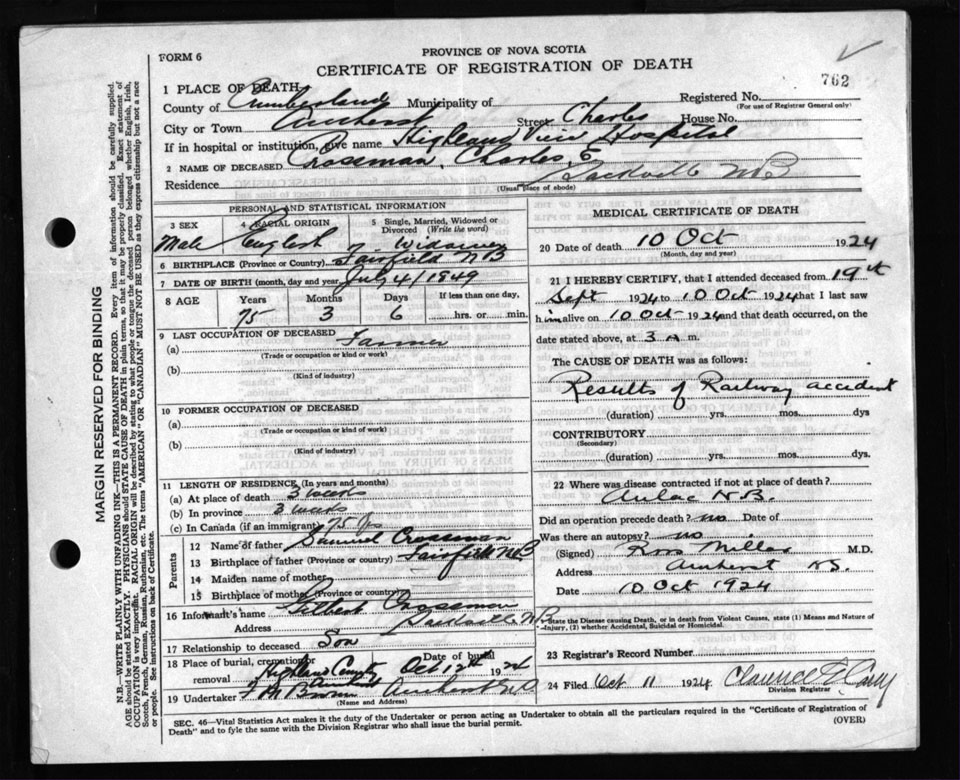 FORM 6
PROVINCE OF NOVA SCOTIA
CERTIFICATE OF REGISTRATION OF DEATH
762
1 PLACE OF DEATH
County of Cumberland Municipality of
Registered No.
(For use of Registrar General only)
City or Town Amherst Street Charles House No.
If in hospital or institution, give name Highland View Hospital
2 NAME OF DECEASED Crossman, Charles, E
Residence Sackville NB
(Usual place of abode)
PERSONAL AND STATISTICAL INFORMATION
3 SEX
Male
4 RACIAL ORIGIN
English
5 Single, Married, Widowed or Divorced (Write the word)
Widower
6 BIRTHPLACE (Province or Country) Fairfield NB
7 DATE OF BIRTH (month, day and year) July 4/1849
8 AGE Years Months Days If less than one day,
75 3 6 hrs. or min.
9 LAST OCCUPATION OF DECEASED
(a) Farmer
(Trade or occupation or kind or work)
(b)
(Kind of industry)
10 FORMER OCCUPATION OF DECEASED
(a)
(Trade or occupation or kind or work)
(b)
(Kind of industry)
11 LENGTH OF RESIDENCE (In years and months)
(a) At place of death 3 weeks
(b) In province 3 weeks
(c) In Canada (if an immigrant) 75 yrs
Parents
12 Name of father Samuel Crossman
13 Birthplace of father (Province or country) Fairfield NB
14 Maiden name of mother
15 Birthplace of mother (Province or country)
16 Informant's name Crossman
Address Sackville NB
17 Relationship to deceased Son
18 Place of burial, cremation or removal Highland Date of burial Oct 12th 1924
19 Undertaker Amherst NS
(Name and Address)
MEDICAL CERTIFICATE OF DEATH
20 Date of death 10 Oct 1924
(Month, day and year)
21 I HEREBY CERTIFY, that I attended deceased from 19th
Sept 1924 to 10 Oct 1924 that I last saw
him alive on 10 Oct 1924 and that death occurred, on the
date stated above, at 3 A m.
The CAUSE OF DEATH was as follows:
Results of Railway accident
(duration) yrs. mos. dys
CONTRIBUTORY
(Secondary)
(duration) yrs. mos. dys.
22 Where was disease contracted if not at place of death?
Aulac N.B.
Did an operation precede death? no Date of
Was there an autopsy? no
(Signed) Ross Millar M.D.
Address Amherst NS.
Date 10 Oct 1924
State the Disease causing Death, or in death from Violent Causes, state (1) Means and Nature of
Injury, (2) whether Accidental, Suicidal or Homicidal.
23 Registrar's Record Number
24 Filed Oct 11 1924 Clarence
Division Registrar
SEC. 46—Vital Statistics Act makes it the duty of the Undertaker or person acting as Undertaker to obtain all the particulars required in the "Certificate of Registration of
Death" and to fyle the same with the Division Registrar who shall issue the burial permit.
(OVER)
MARGIN RESERVED FOR BINDING
N.B.—WRITE PLAINLY WITH UNFADING INK—THIS IS A PERMANENT RECORD. Every item of information should be carefully supplied.
AGE should be stated EXACTLY. PHYSICIANS should STATE CAUSE OF DEATH in plain terms, so that it may be properly classified. Exact statement of
OCCUPATION is very important. RACIAL ORIGIN will be described by stating to what people or tongue the deceased person belonged whether English, Irish,
Scotch, French, German, Russian, Ruthenian, etc. The terms "AMERICAN" or "CANADIAN" MUST NOT BE USED as they express citizenship but not a race
or people. See instructions on back of Certificate.